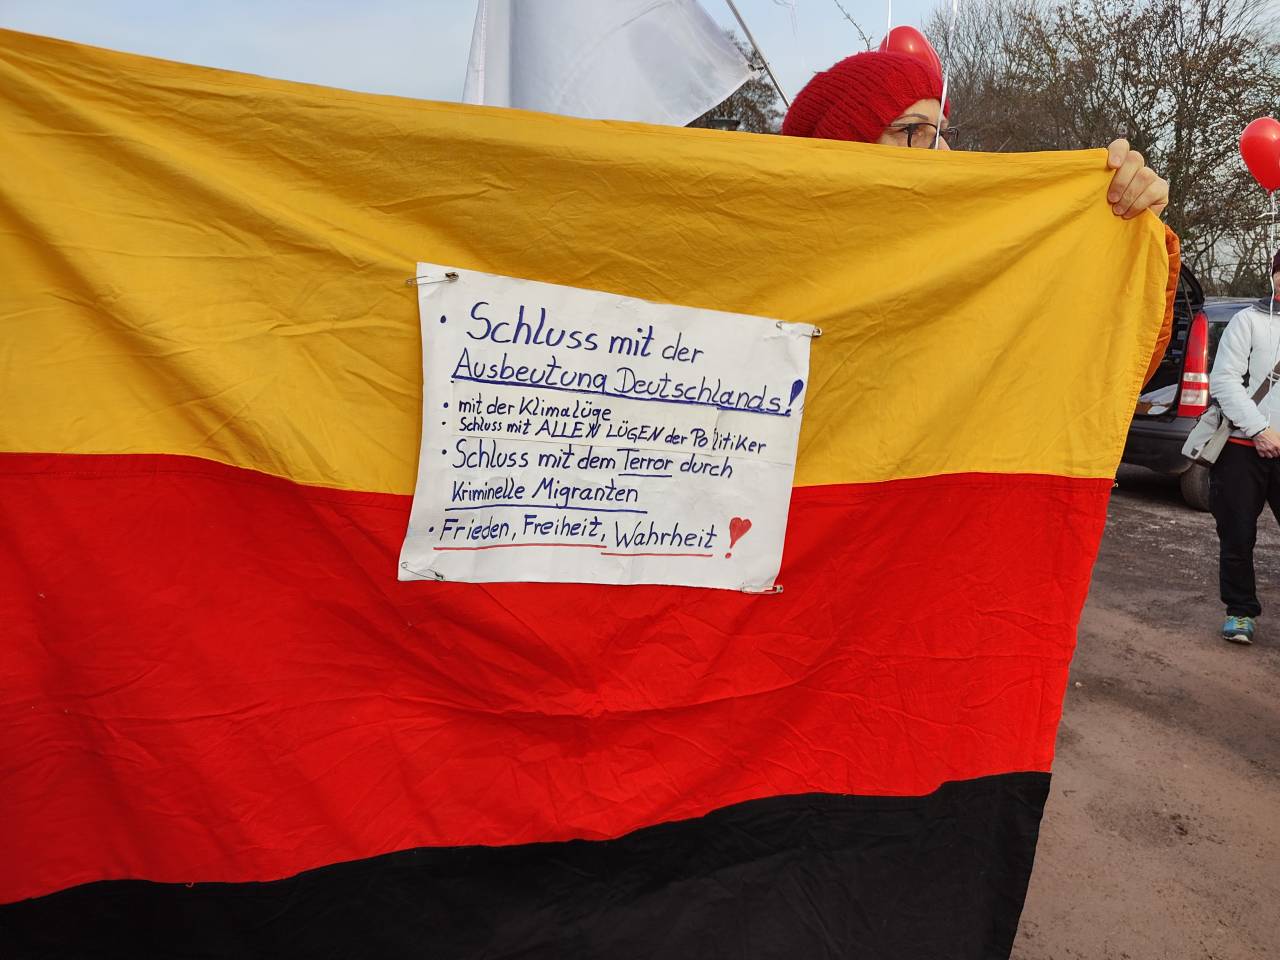 • Schluss mit der
Ausbeutung Deutschlands!
• mit der Klimalüge
• Schluss mit ALLEN LÜGEN der Politiker
• Schluss mit dem Terror durch
Kriminelle Migranten
• Frieden, Freiheit, Wahrheit !